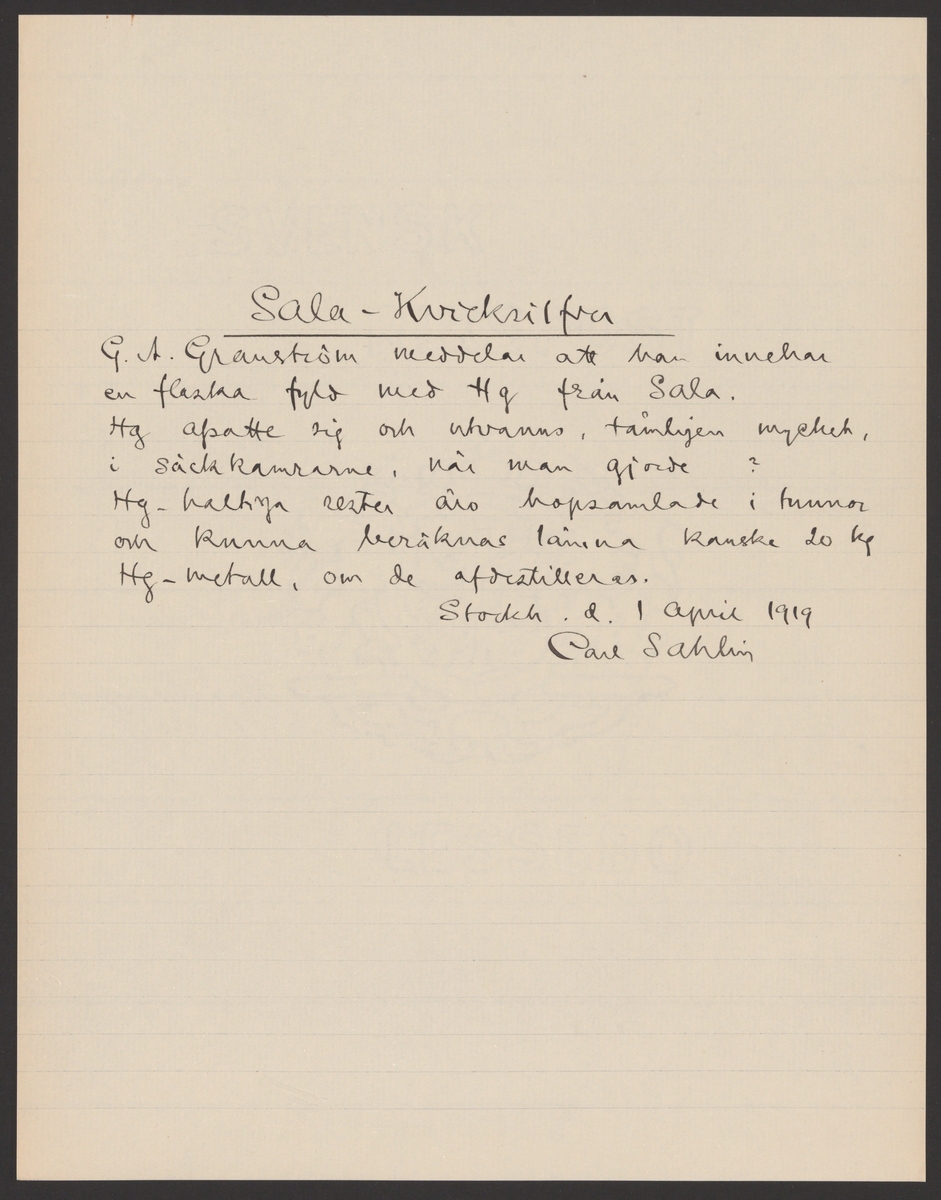 Sala - Kvicksilfver
G. A. Granström meddelar att han innehar
en flaska fyld med Hg från Sala.
Hg afsatte sig och utvanns, tämligen mycket,
i säckkamrarne, när man gjorde ?
Hg-haltiga rester äro hopsamlade i tunnor
och kunna beräknas lämna kanske 20 kg
Hg-metall, om de afdestilleras.
Stockh. d. 1 April 1919
Carl Sahlin